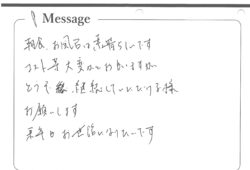 Message
朝食、お風呂は素晴らしいです
コスト等大変かとおもいますが
どうぞ継続していただける様
お願いします
来年もお世話になりたいです